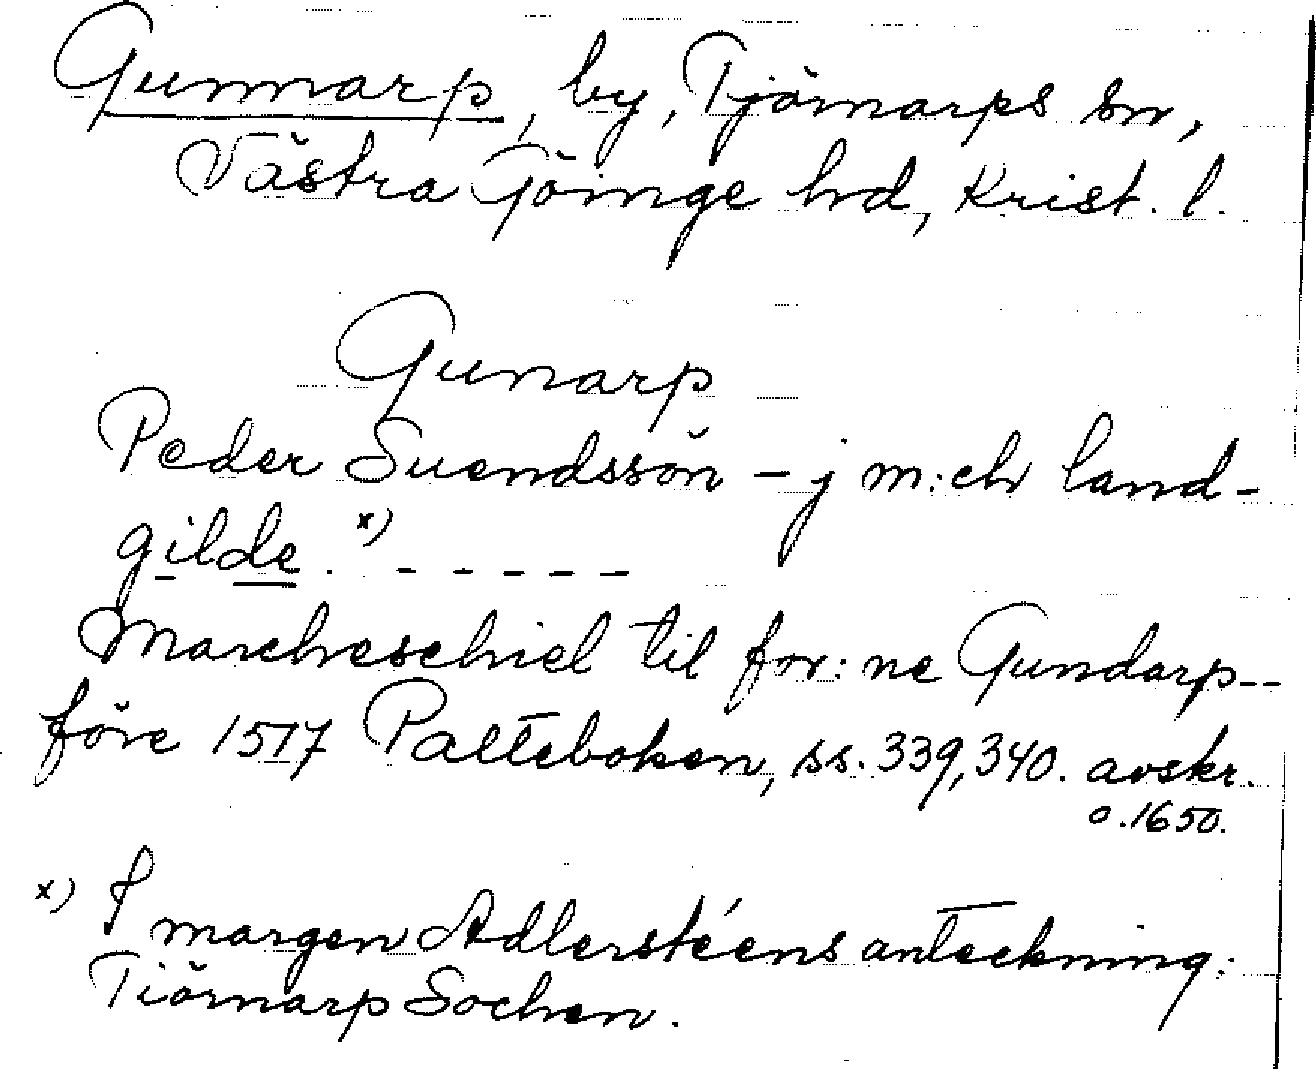 Gunnarp, by, Tjörnarps sn,
Västra Göinge hd, Krist. l.
Gunarp
Peder Suendssön - j m:ch land-
gilde. x) - - - - -
Marcheschiel til for:ne Gundarp--
före 1517 Palteboken, ss. 339, 340. avskr.
o. 1650.
x) I margen Adlersteéns anteckning:
Tiörnarp Sochen.